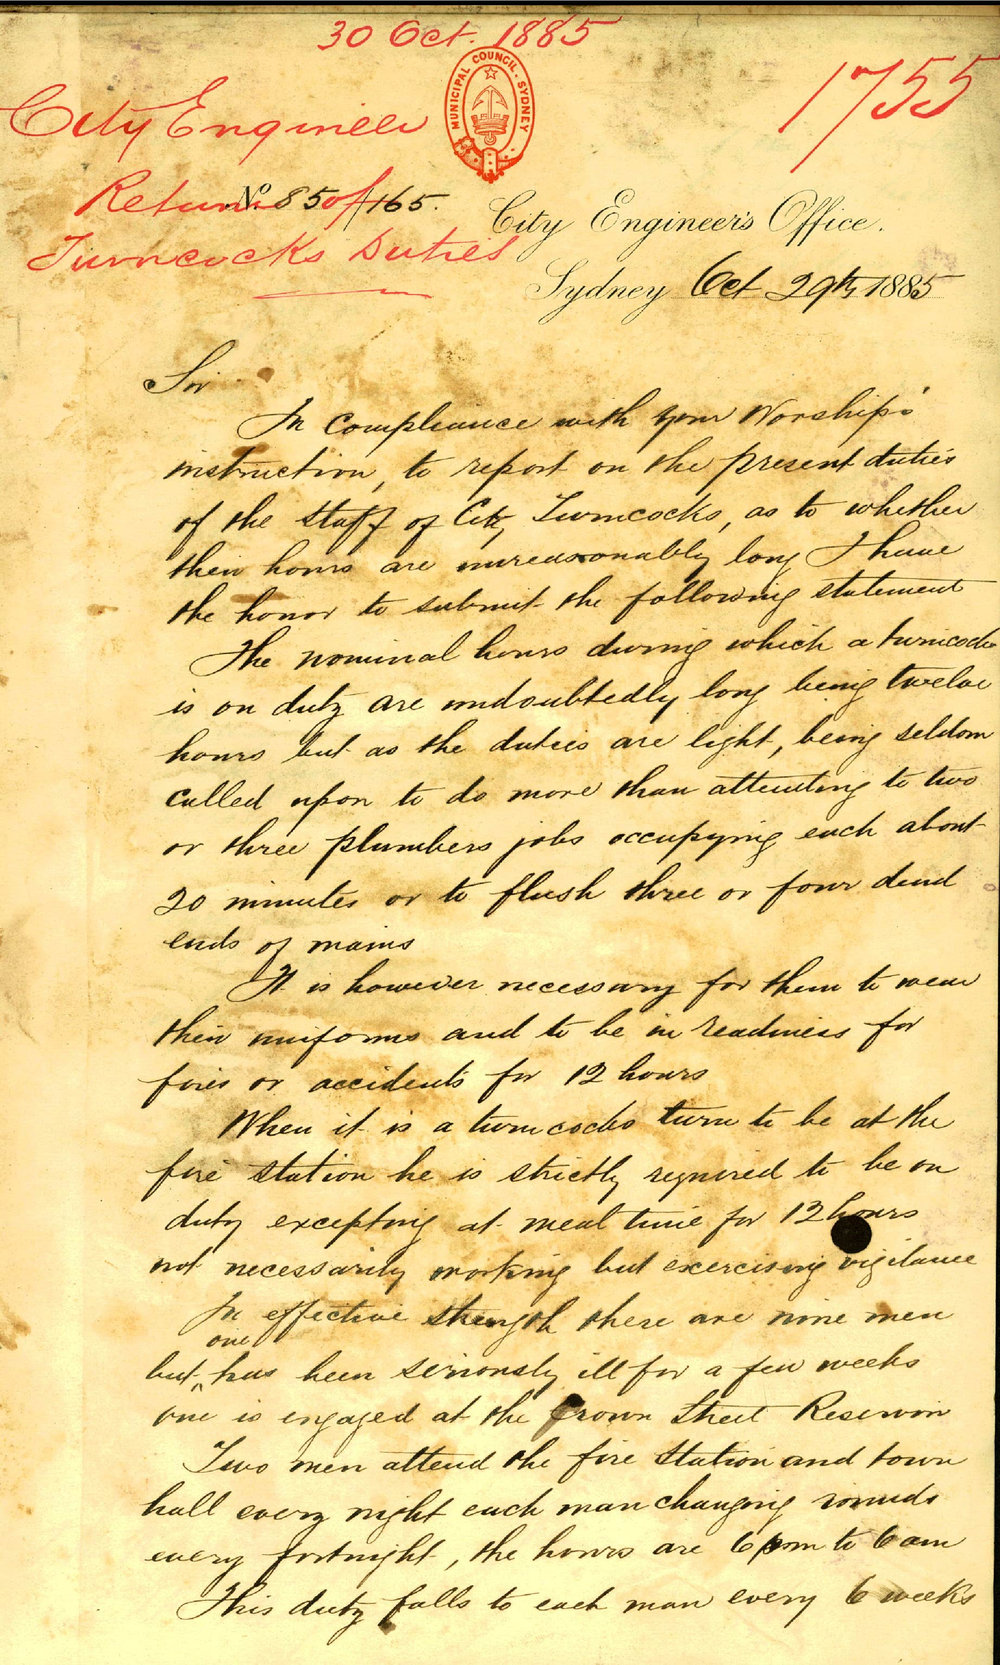 30 Oct. 1885
MUNICIPAL COUNCIL. SYDNEY
1755
City Engineer
Return of
No. 85/165.
Turncocks Duties
City Engineer's Office.
Sydney Oct 29th 1885
Sir
In compliance with your Worship's
instruction, to report on the present duties
of the staff of City Turncocks, as to whether
their hours are unreasonably long I have
the honor to submit the following statement
The nominal hours during which a turncock
is on duty are undoubtedly long being twelve
hours but as the duties are light, being seldom
called upon to do more than attending to two
or three plumbers jobs occupying each about
20 minutes or to flush three or four dead
ends of mains
It is however necessary for them to wear
their uniforms and to be in readiness for
fires or accidents for 12 hours
When it is a turncocks turn to be at the
fire station he is strictly required to be on
duty excepting at meal time for 12 hours
not necessarily working but exercising vigilance
In effective strength there are nine men
but one has been seriously ill for a few weeks
one is engaged at the Crown Street Reservoir
Two men attend the fire station and town
hall every night each man changing rounds
every fortnight, the hours are 6 pm to 6 am
This duty falls to each man every 6 weeks